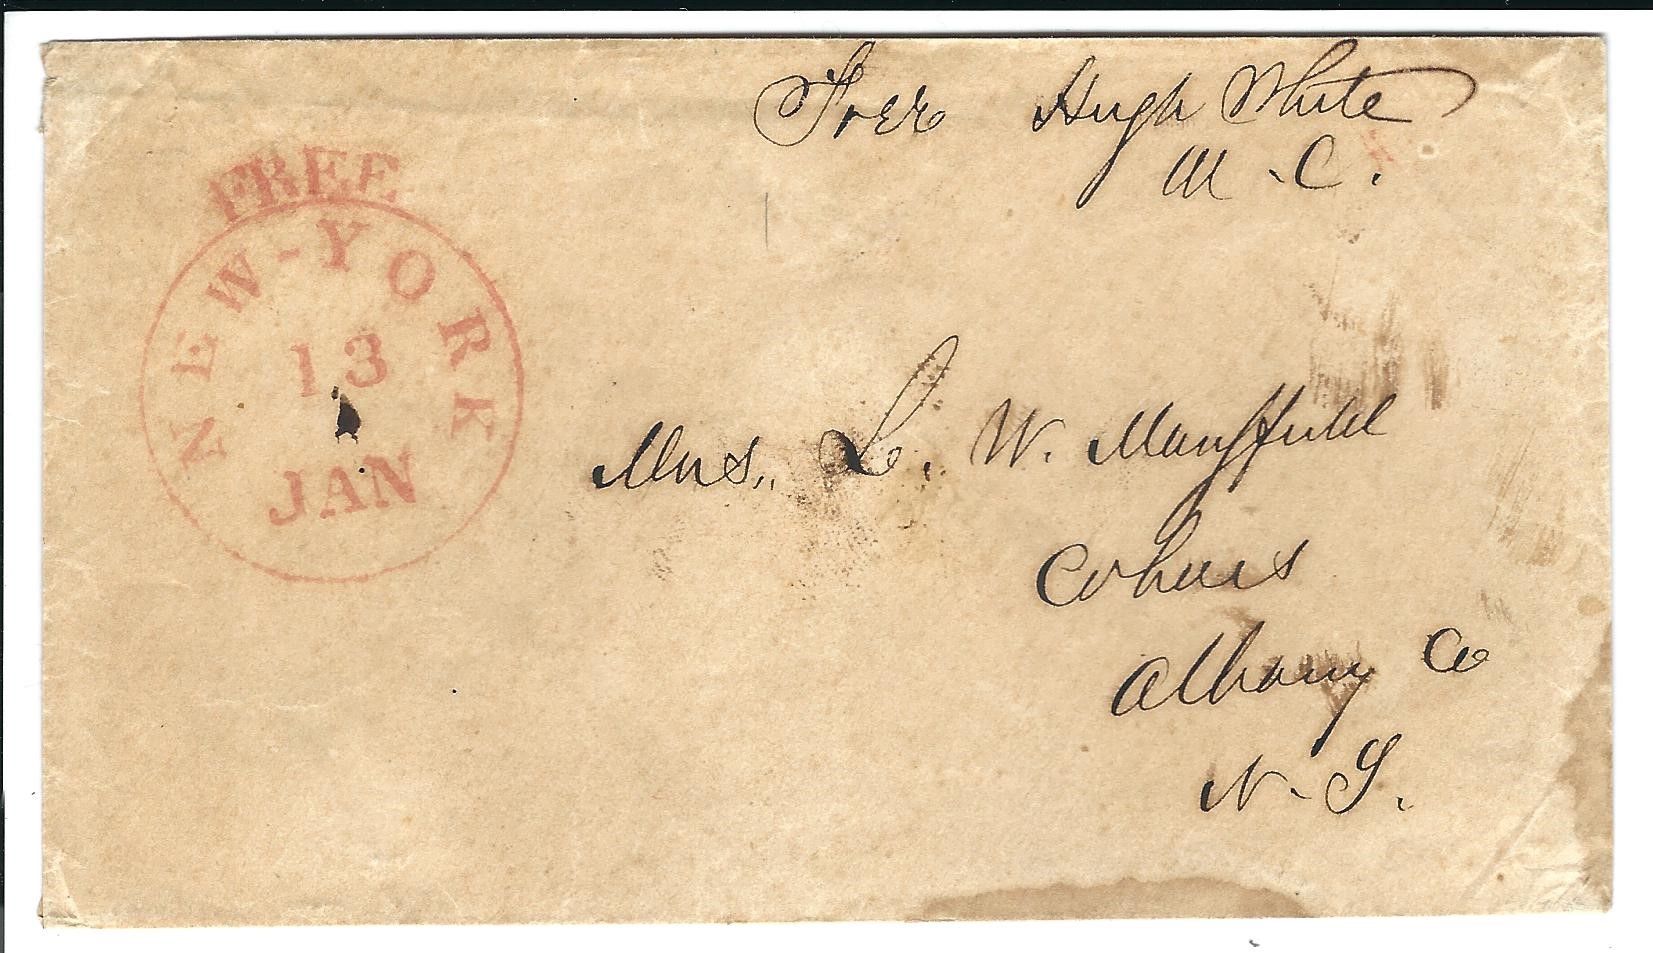 Free Hugh White
M. C.
FREE
NEW-YORK
13
JAN
Mrs. L. W. Mansfield
Cohoes
Albany Co
N. Y.